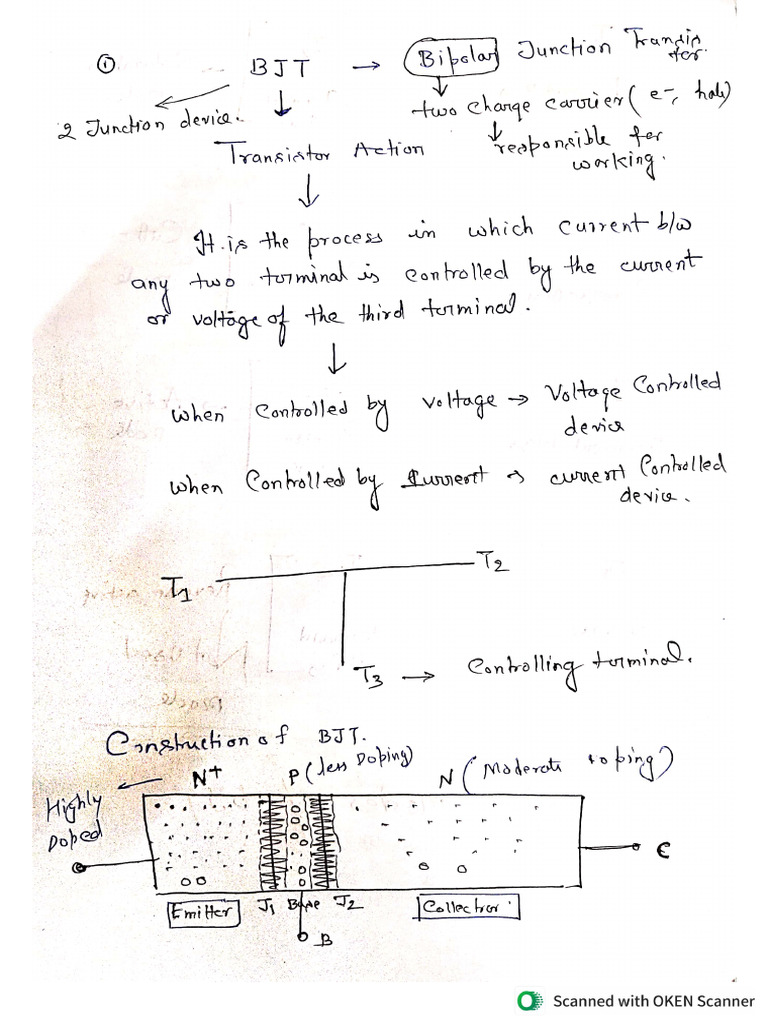 ① BJT → Bipolar Junction Transistor.
2 Junction device.
two charge carrier (e-, hole)
Transistor Action
responsible for
working.
It is the process in which current b/w
any two terminal is controlled by the current
or voltage of the third terminal.
when controlled by voltage → Voltage Controlled
device
when Controlled by current → current Controlled
device.
T1
T2
T3 → Controlling terminal.
Construction of BJT.
Highly
Doped
N+
P (less Doping)
N (Moderate doping)
C
Emitter
J1 Base J2
Collector
B
Scanned with OKEN Scanner